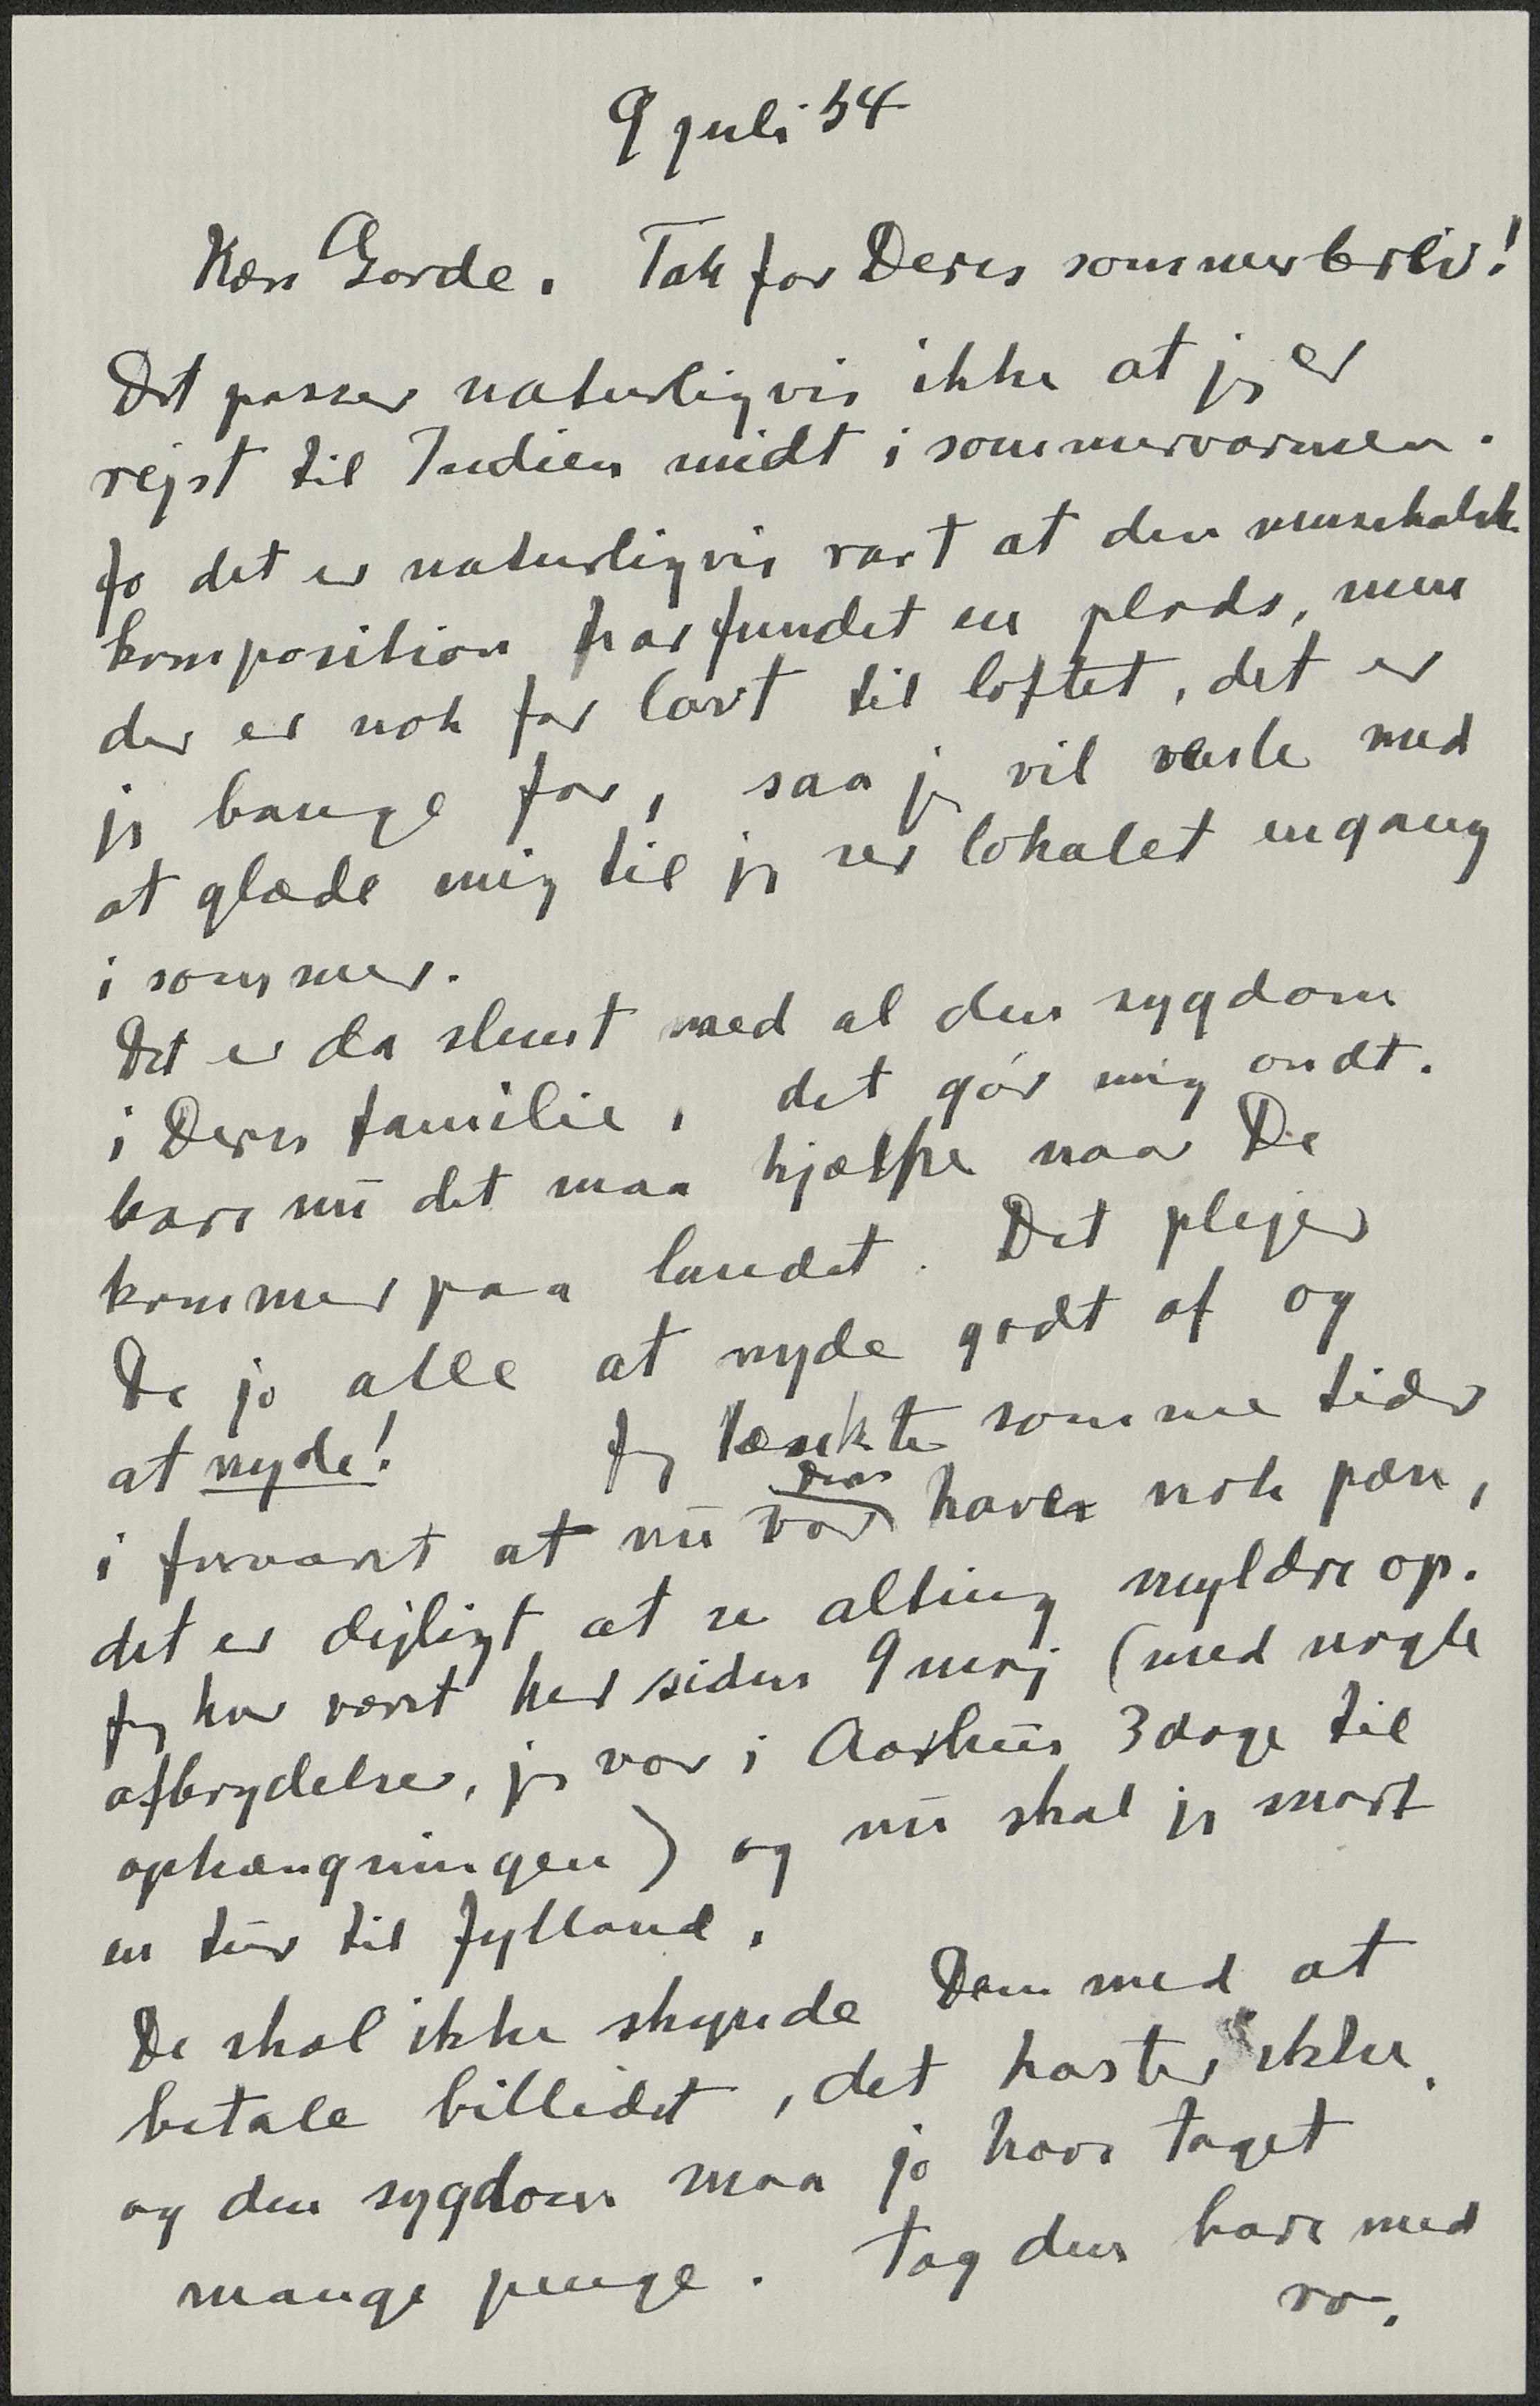 9 juli 54
Kære Gorde. Tak for Deres sommerbrev!
Det passer naturligvis ikke at jeg er
rejst til Indien midt i sommervarmen.
Jo det er naturligvis rart at den musikalsk
komposition har fundet en plads, men
der er nok for lavt til loftet, det er
jeg bange for, saa jeg vil vente med
at glæde mig til jeg ser lokalet engang
i sommer.
Det er da slemt med al den sygdom
i Deres familie, det gør mig ondt.
bare nu det maa hjælpe naar De
kommer paa landet. Det plejer
De jo alle at nyde godt af og
at nyde! Jeg tænkte somme tider
i foraaret at nu var Deres have nok pæn,
det er dejligt at se alting myldre op.
Jeg har været her siden 9 maj (med nogle
afbrydelser, jeg var i Aarhus 3 dage til
ophængningen) og nu skal jeg snart
en tur til Jylland.
De skal ikke skynde Dem med at
betale billedet, det haster ikke.
og den sygdom maa jo have taget
mange penge. Tag den bare med
ro.